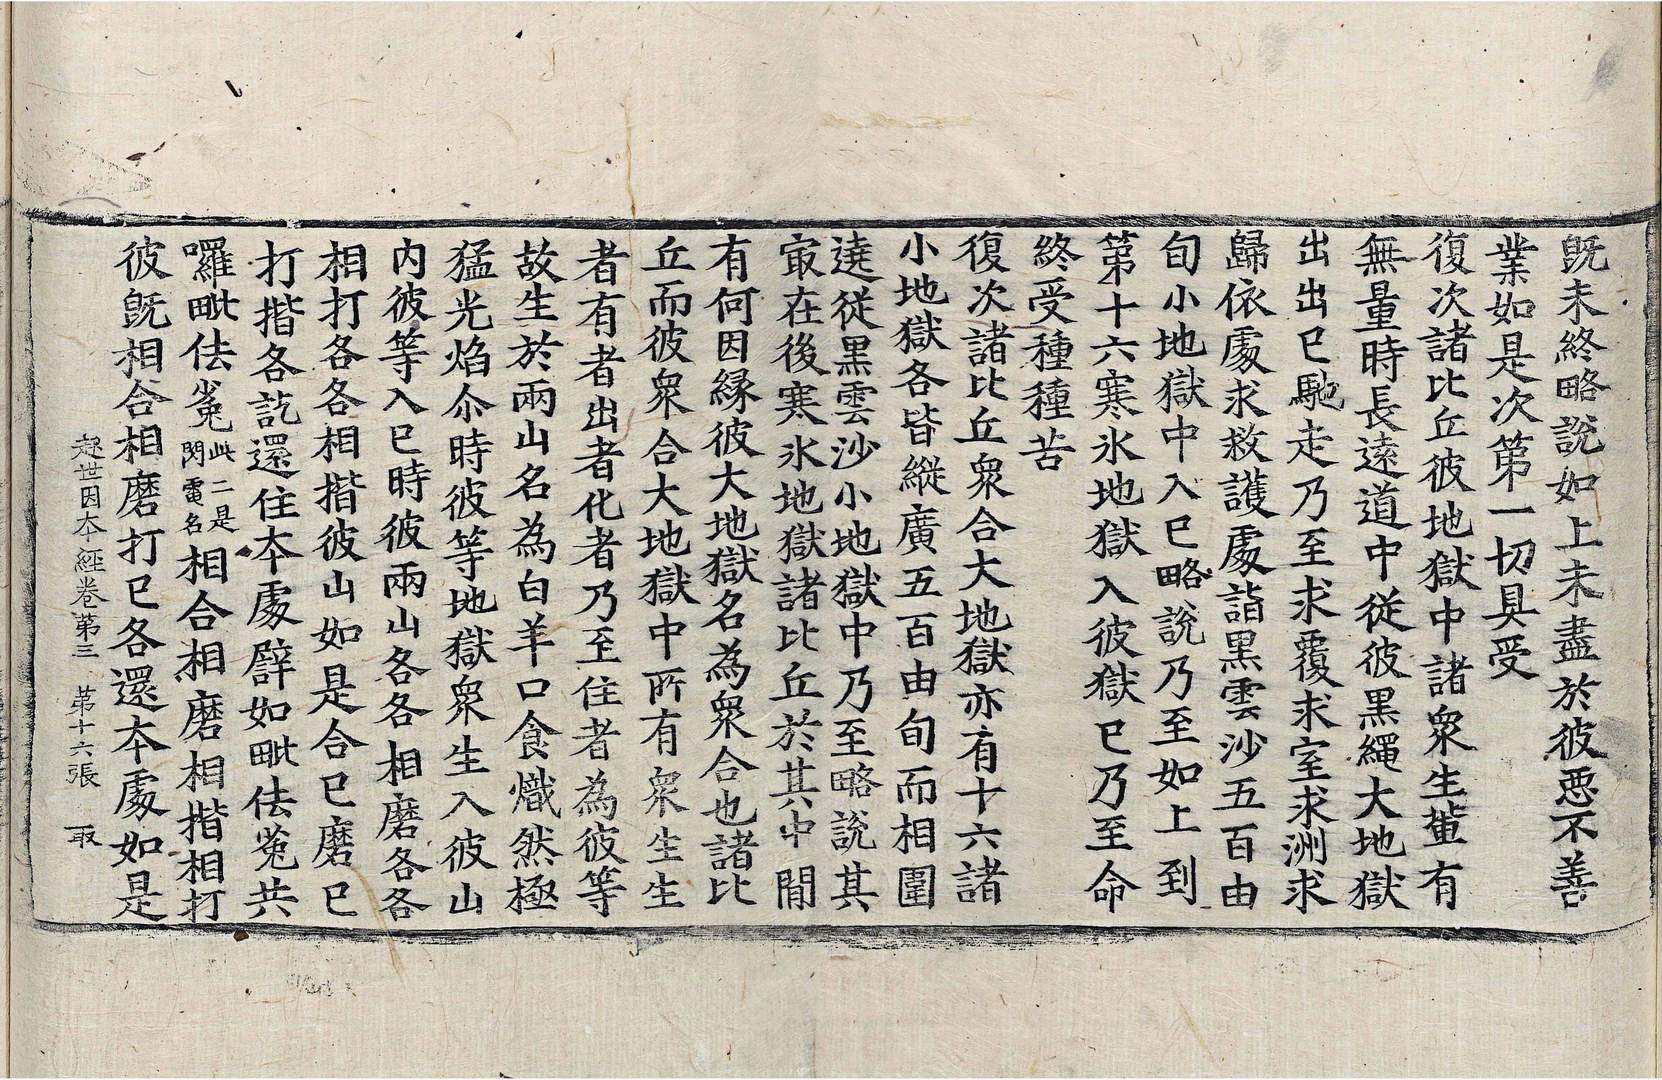 旣未終略說如上未盡於彼惡不善
業如是次第一切具受
復次諸比丘彼地獄中諸衆生輩有
無量時長遠道中從彼黑繩大地獄
出出已馳走乃至求覆求室求洲求
歸依處求救護處詣黑雲沙五百由
旬小地獄中入已略說乃至如上到
第十六寒氷地獄入彼獄已乃至命
終受種種苦
復次諸比丘衆合大地獄亦有十六諸
小地獄各皆縱廣五百由旬而相圍
遶從黑雲沙小地獄中乃至略說其
㝡在後寒氷地獄諸比丘於其中間
有何因縁彼大地獄名為衆合也諸比
丘而彼衆合大地獄中所有衆生生
者有者出者化者乃至住者為彼等
故生於兩山名為白羊口食熾然極
猛光焰尒時彼等地獄衆生入彼山
內彼等入已時彼兩山各各相磨各各
相打各各相揩彼山如是合已磨已
打揩各訖還住本處譬如毗佉菟共
囉毗佉菟此二是閃電名相合相磨相揩相打
彼旣相合相磨打已各還本處如是
起世因本經卷第三 第十六張 取